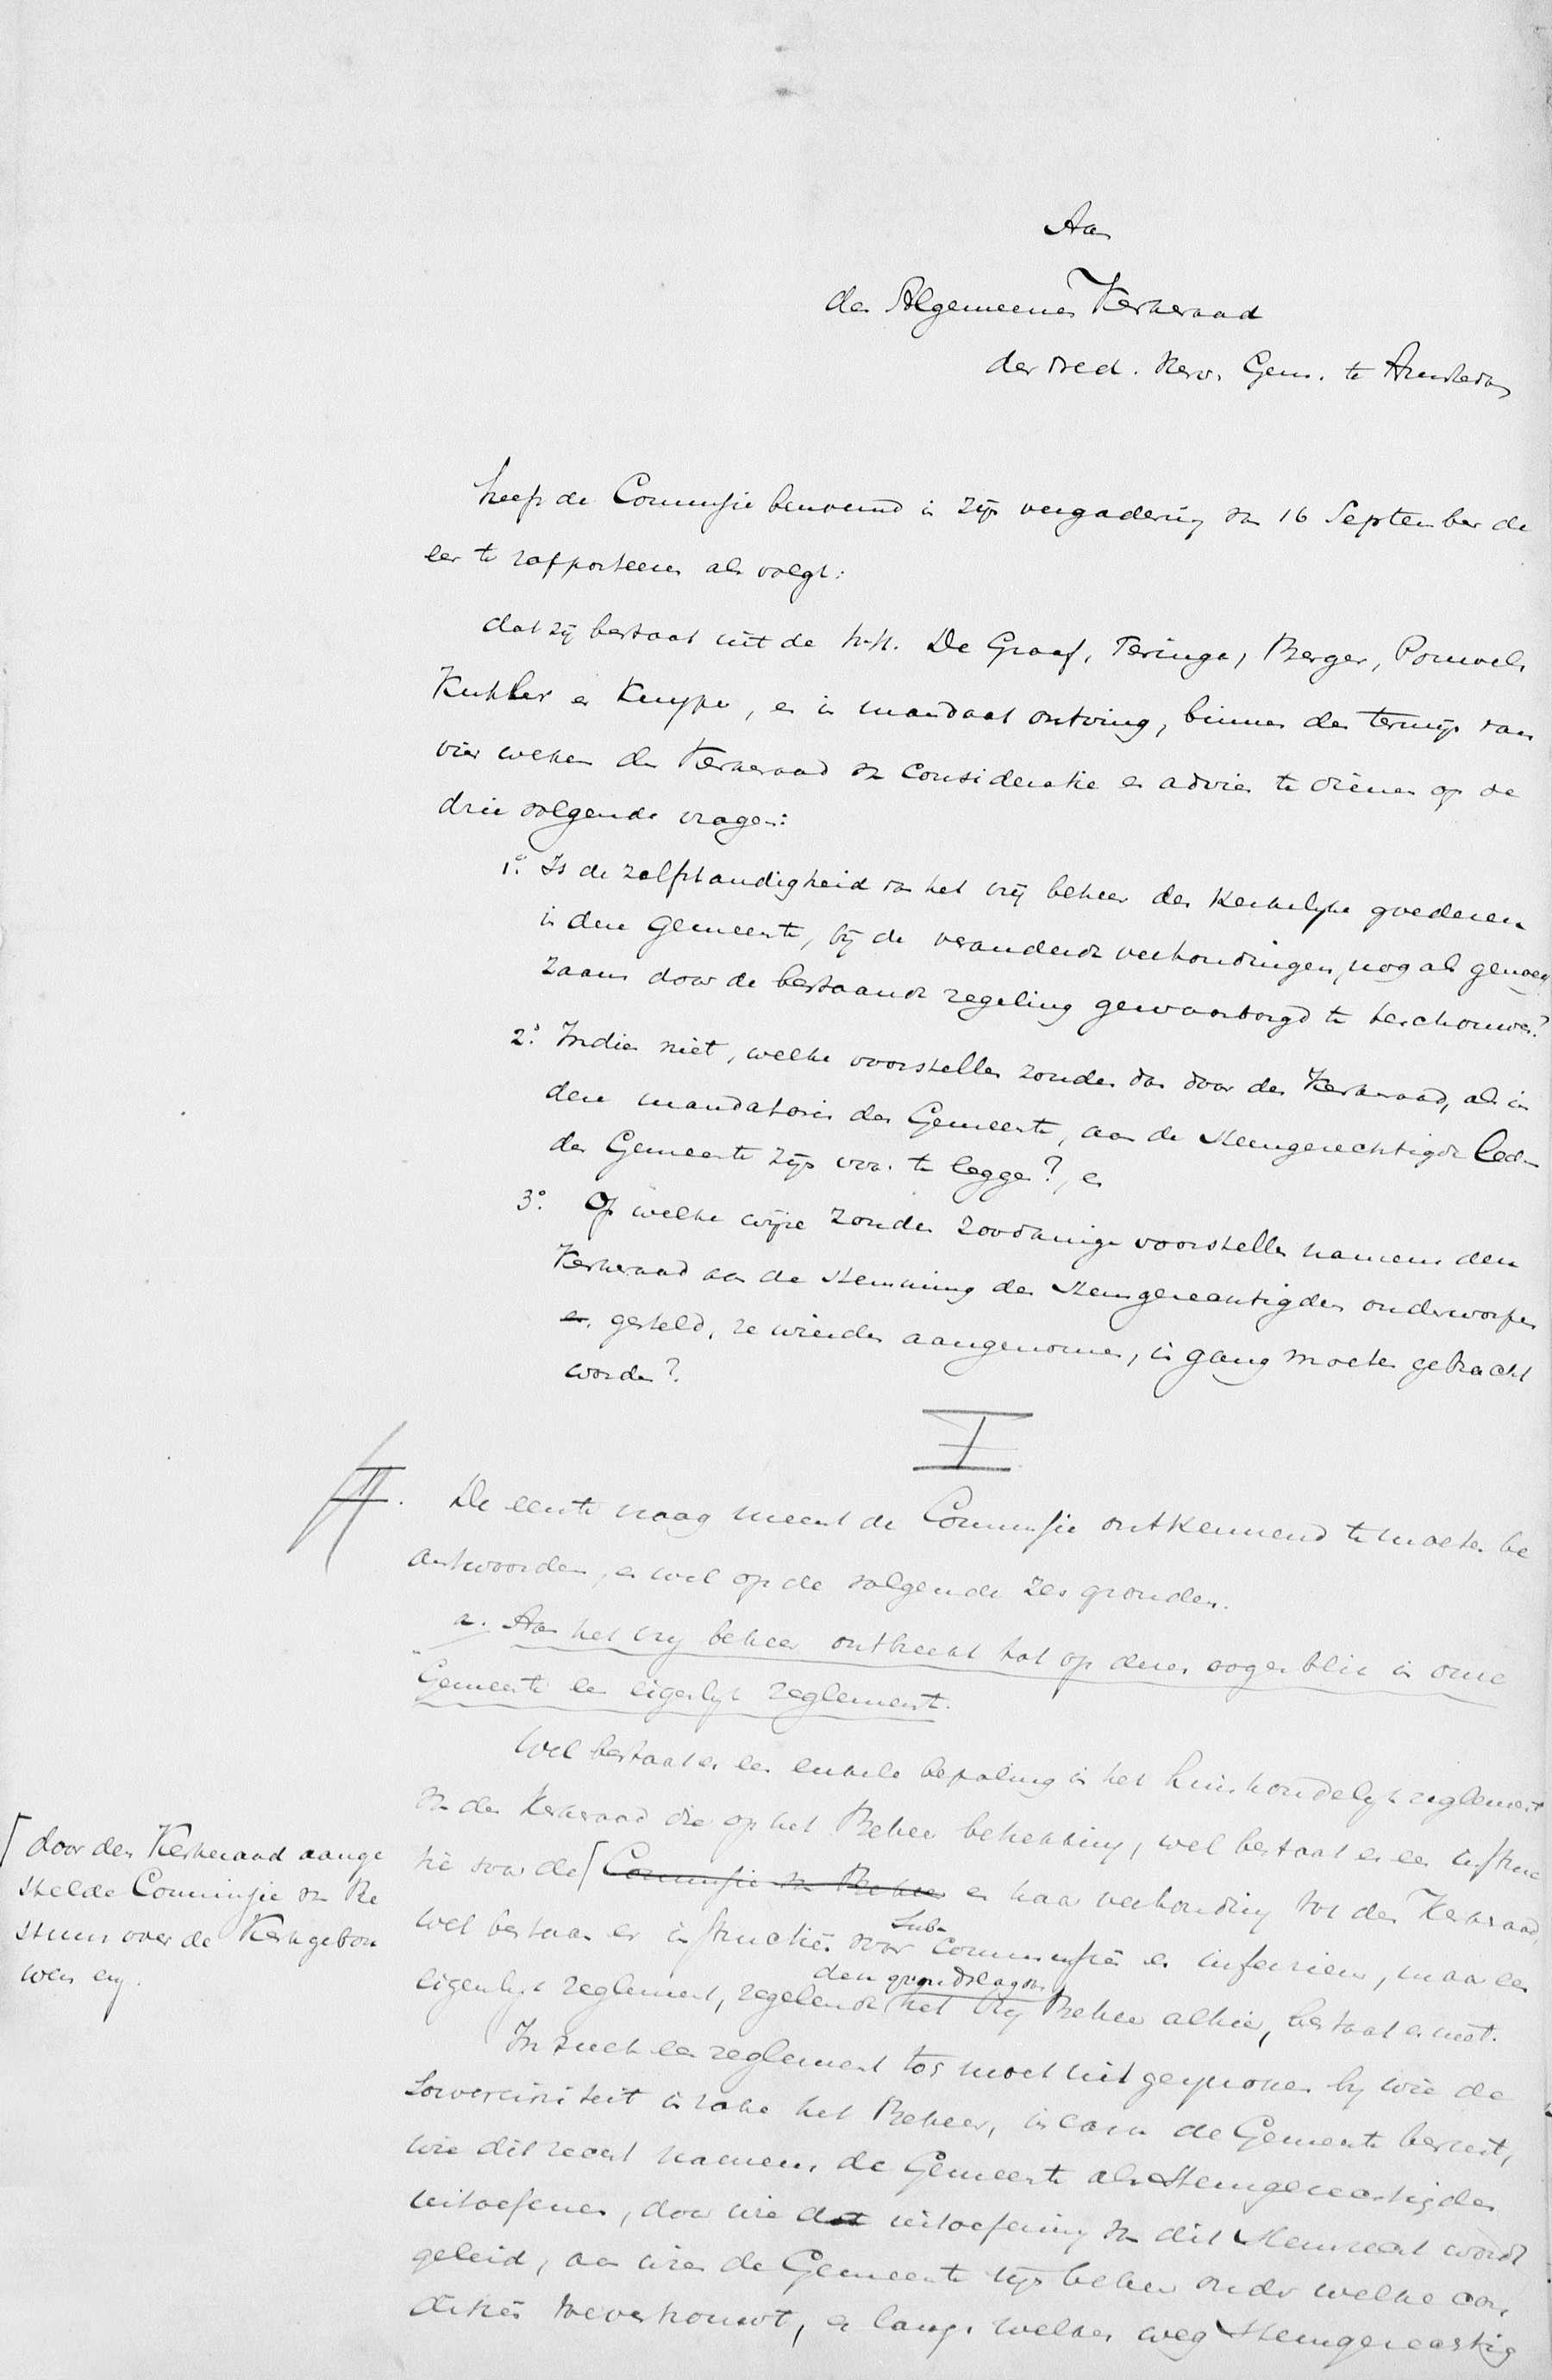 Aan
den Algemeenen Kerkeraad
der Ned. Herv. Gem. te Amsterdam
heeft de Commissie benoemd in zijn vergadering van 16 September de
eer te rapporteeren als volgt:
dat zij bestaat uit de h.h. De Graaf, Teringa, Berger, Pouwels
Kuhler en Kuyper, en in mandaat ontving, binnen den termijn van
vier weken den Kerkeraad van consideratie en advies te dienen op de
drie volgende vragen:
1o. Is de zelfstandigheid van het vrij beheer der Kerkelijke goederen
in den Gemeente, bij de veranderde verhoudingen, nog als genoeg
zaam door de bestaande regeling gewaarborgd te beschouwen?
2o. Indien niet, welke voorstellen zouden dan door den Kerkeraad, als in
den mandatoris der Gemeente, aan de stemgerechtigde leden
der Gemeente zijn voor te leggen?, en
3o. Op welke wijze zouden zoodanige voorstellen namens den
Kerkeraad aan de stemming der stemgerechtigden onderworpen
en, gesteld, ze wierden aangenomen, in gang moeten gebracht
worden?
I
De eerste vraag meent de Commissie ontkennend te moeten be
antwoorden, en wel op de volgende zes gronden.
a. Aan het vrij beheer ontbreekt tot op dezen oogenblik in onze
Gemeente een eigenlijk reglement.
Wel bestaat er een enkele bepaling in het huishoudelijk reglement
van den Kerkeraad die op het Beheer betrekking, wel bestaat er een instruc
tie voor de [ Commissie van Beheer en haar verhouding tot den Kerkeraad,
[ door den Kerkeraad aange
stelde Commissie van Be
stuur over de Kerkgebou
wen en
wel bestaan er instructiën voor Sub-Commissiën en inferieuren, maar een
eigenlijk reglement, regelende den grondslag van het vrij Beheer alhier, bestaat er niet.
In zulk een reglement toch moet uitgesproken bij wie de
Souvereiniteit in zake het Beheer, in casu de Gemeente berust,
wie dit recht namens de Gemeente als Stemgerechtigden
uitoefenen, door wie de uitoefening van dit stemrecht wordt
geleid, aan wien de Gemeente zijn beheer onder welke con
ditiën toevertrouwt, en langs welken weg Stemgerechtig